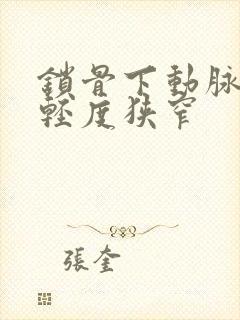 鎖骨下動脉
輕度狹窄
張奎